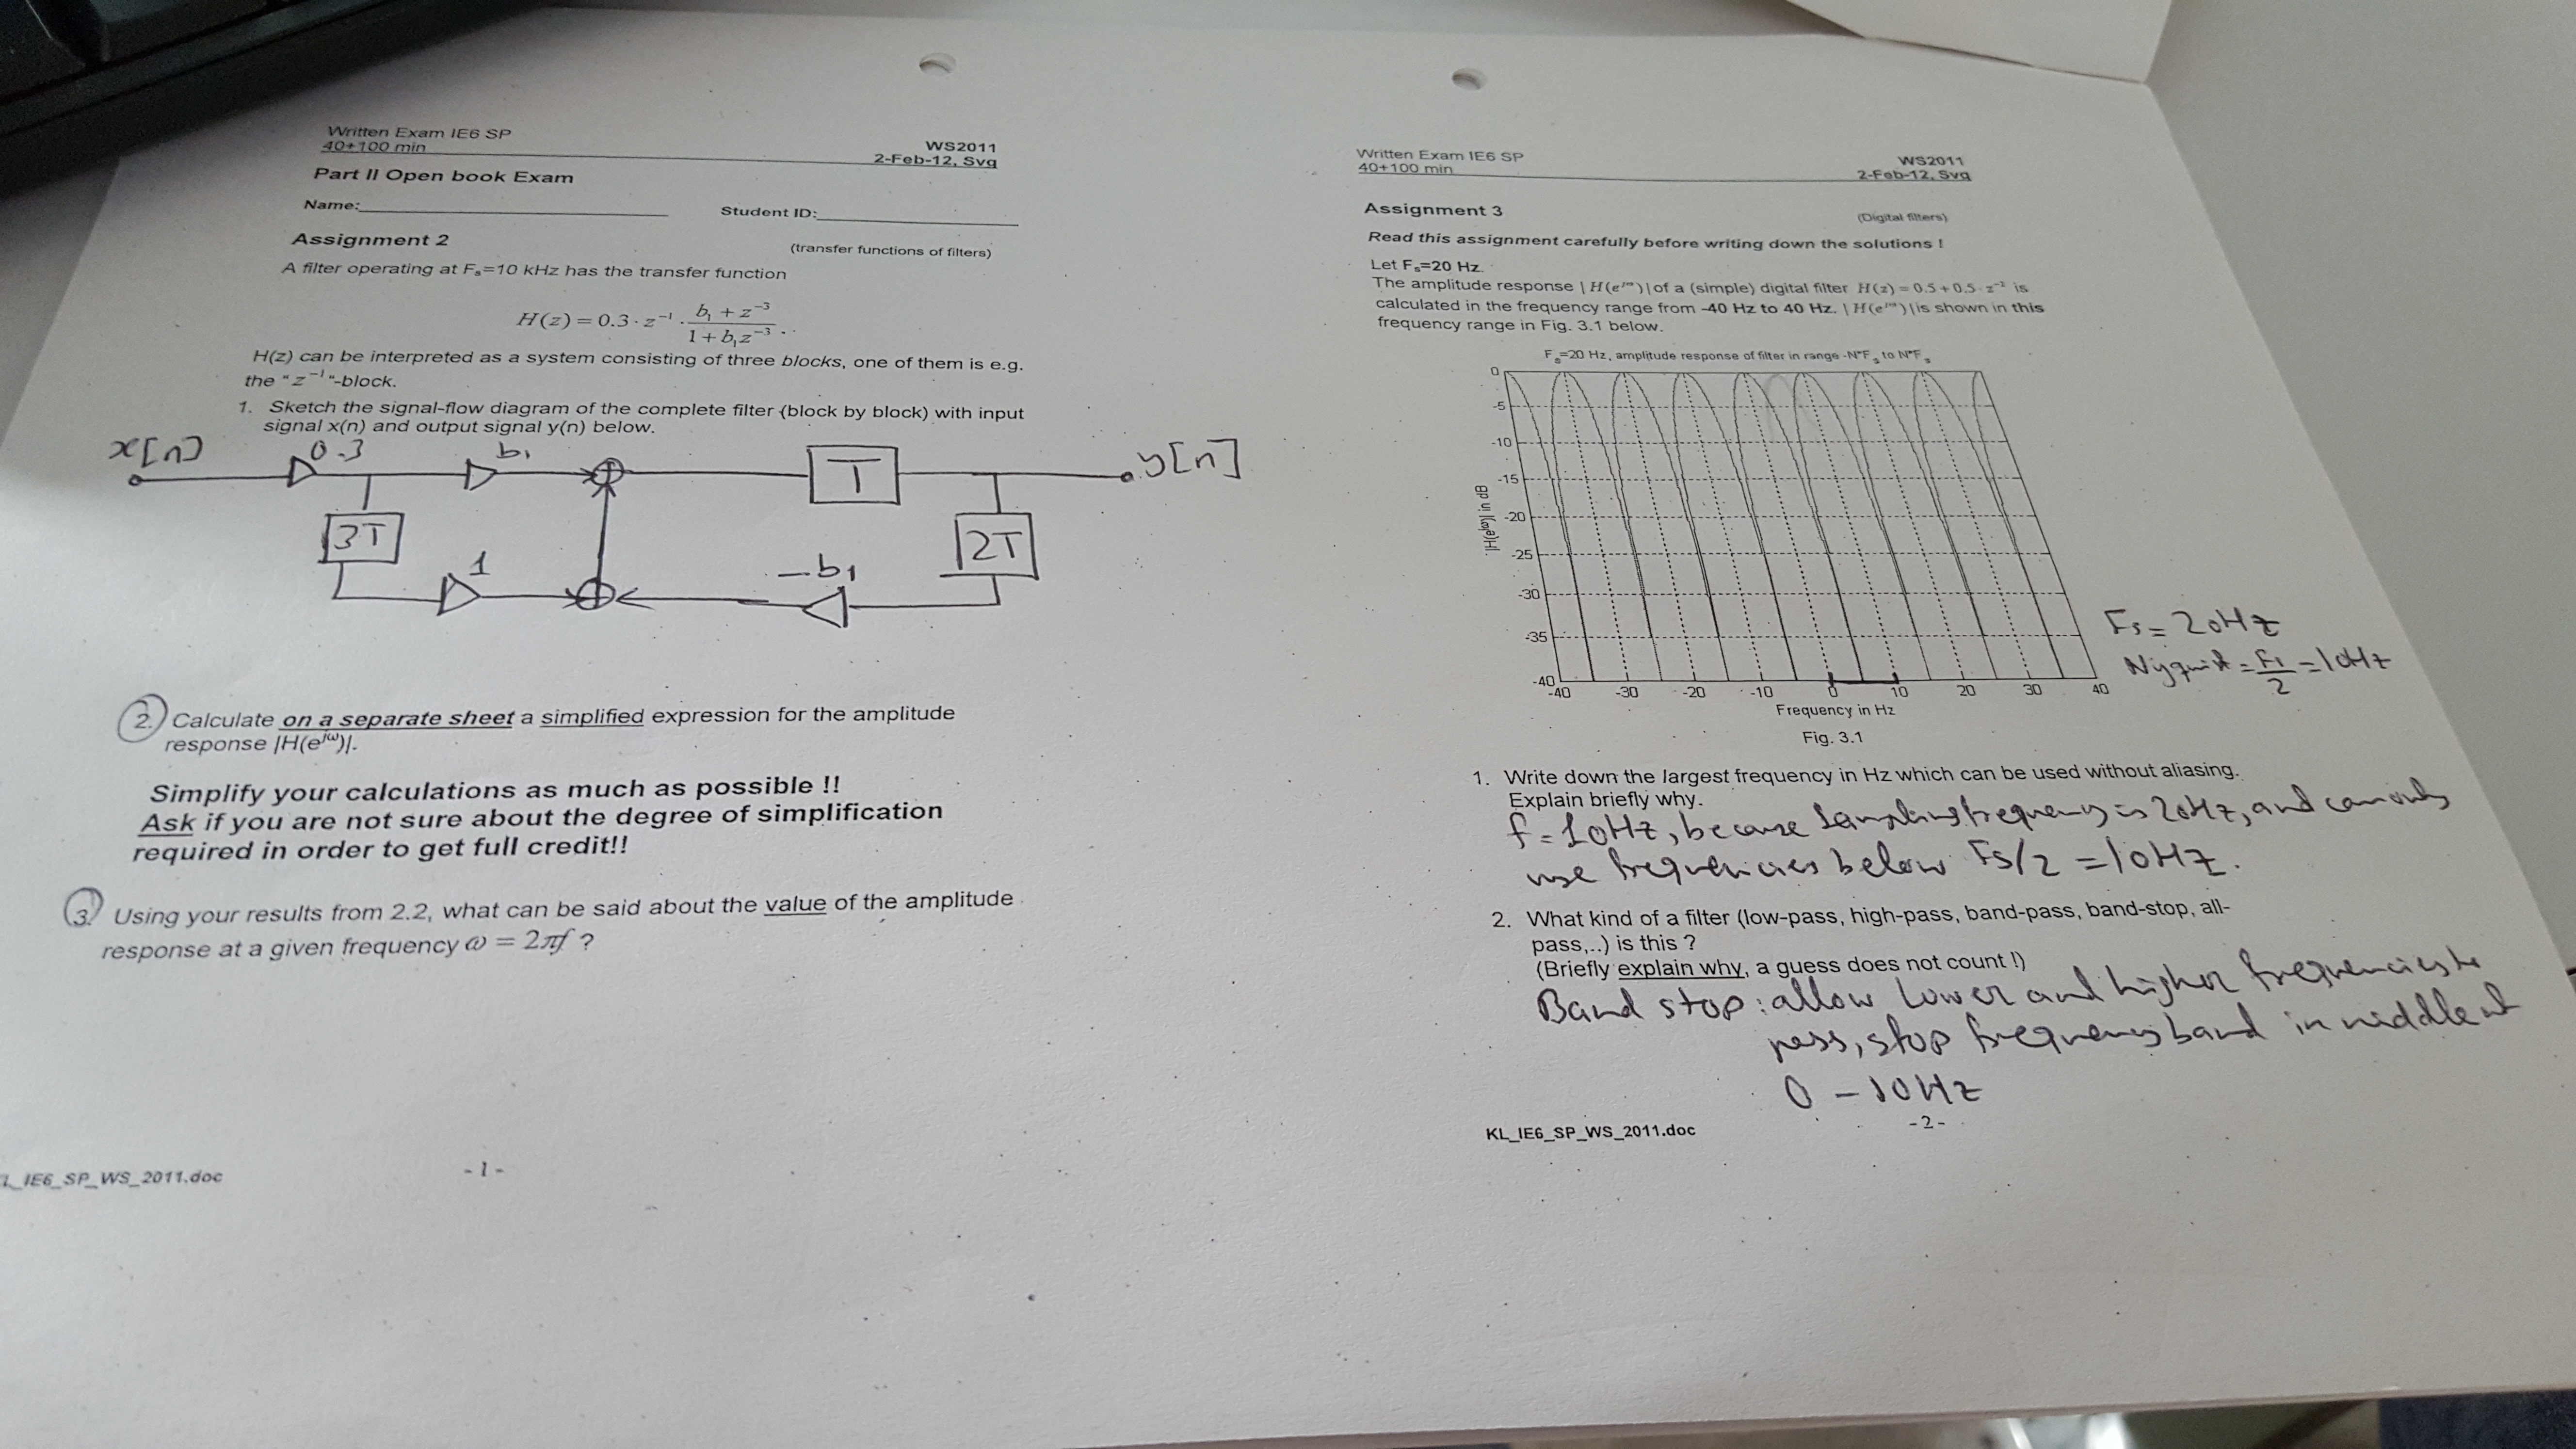 Written Exam IE6 SP
40+100 min
WS2011
2-Feb-12, Svg
Part II Open book Exam
Name:
Student ID:
Assignment 2
(transfer functions of filters)
A filter operating at Fs=10 kHz has the transfer function
H(z) = 0.3 · z⁻¹ · (b₁ + z⁻³)/(1 + b₁z⁻³) .
H(z) can be interpreted as a system consisting of three blocks, one of them is e.g.
the “z⁻¹“-block.
1. Sketch the signal-flow diagram of the complete filter (block by block) with input
signal x(n) and output signal y(n) below.
x[n]
0.3
b₁
T
y[n]
3T
2T
1
-b₁
2. Calculate on a separate sheet a simplified expression for the amplitude
response |H(e^jω)|.
Simplify your calculations as much as possible !!
Ask if you are not sure about the degree of simplification
required in order to get full credit!!
3. Using your results from 2.2, what can be said about the value of the amplitude
response at a given frequency ω = 2πf ?
L_IE6_SP_WS_2011.doc
- 1 -
Written Exam IE6 SP
40+100 min
WS2011
2-Feb-12, Svg
Assignment 3
(Digital filters)
Read this assignment carefully before writing down the solutions !
Let Fs=20 Hz.
The amplitude response | H(e^jω) | of a (simple) digital filter H(z) = 0.5 + 0.5 · z⁻² is
calculated in the frequency range from -40 Hz to 40 Hz. | H(e^jω) | is shown in this
frequency range in Fig. 3.1 below.
Fs=20 Hz, amplitude response of filter in range -N*Fs to N*Fs
0
-5
-10
-15
-20
-25
-30
-35
-40
|H(e^jω)| in dB
-40 -30 -20 -10 0 10 20 30 40
Frequency in Hz
Fig. 3.1
Fs = 20Hz
Nyquist = Fs/2 = 10Hz
1. Write down the largest frequency in Hz which can be used without aliasing.
Explain briefly why.
f = 10Hz, because sampling frequency is 20Hz, and can only
use frequencies below Fs/2 = 10Hz.
2. What kind of a filter (low-pass, high-pass, band-pass, band-stop, all-
pass,..) is this ?
(Briefly explain why, a guess does not count !)
Band stop: allow lower and higher frequencies to
pass, stop frequency band in middle of
0 - 10Hz
KL_IE6_SP_WS_2011.doc
- 2 -